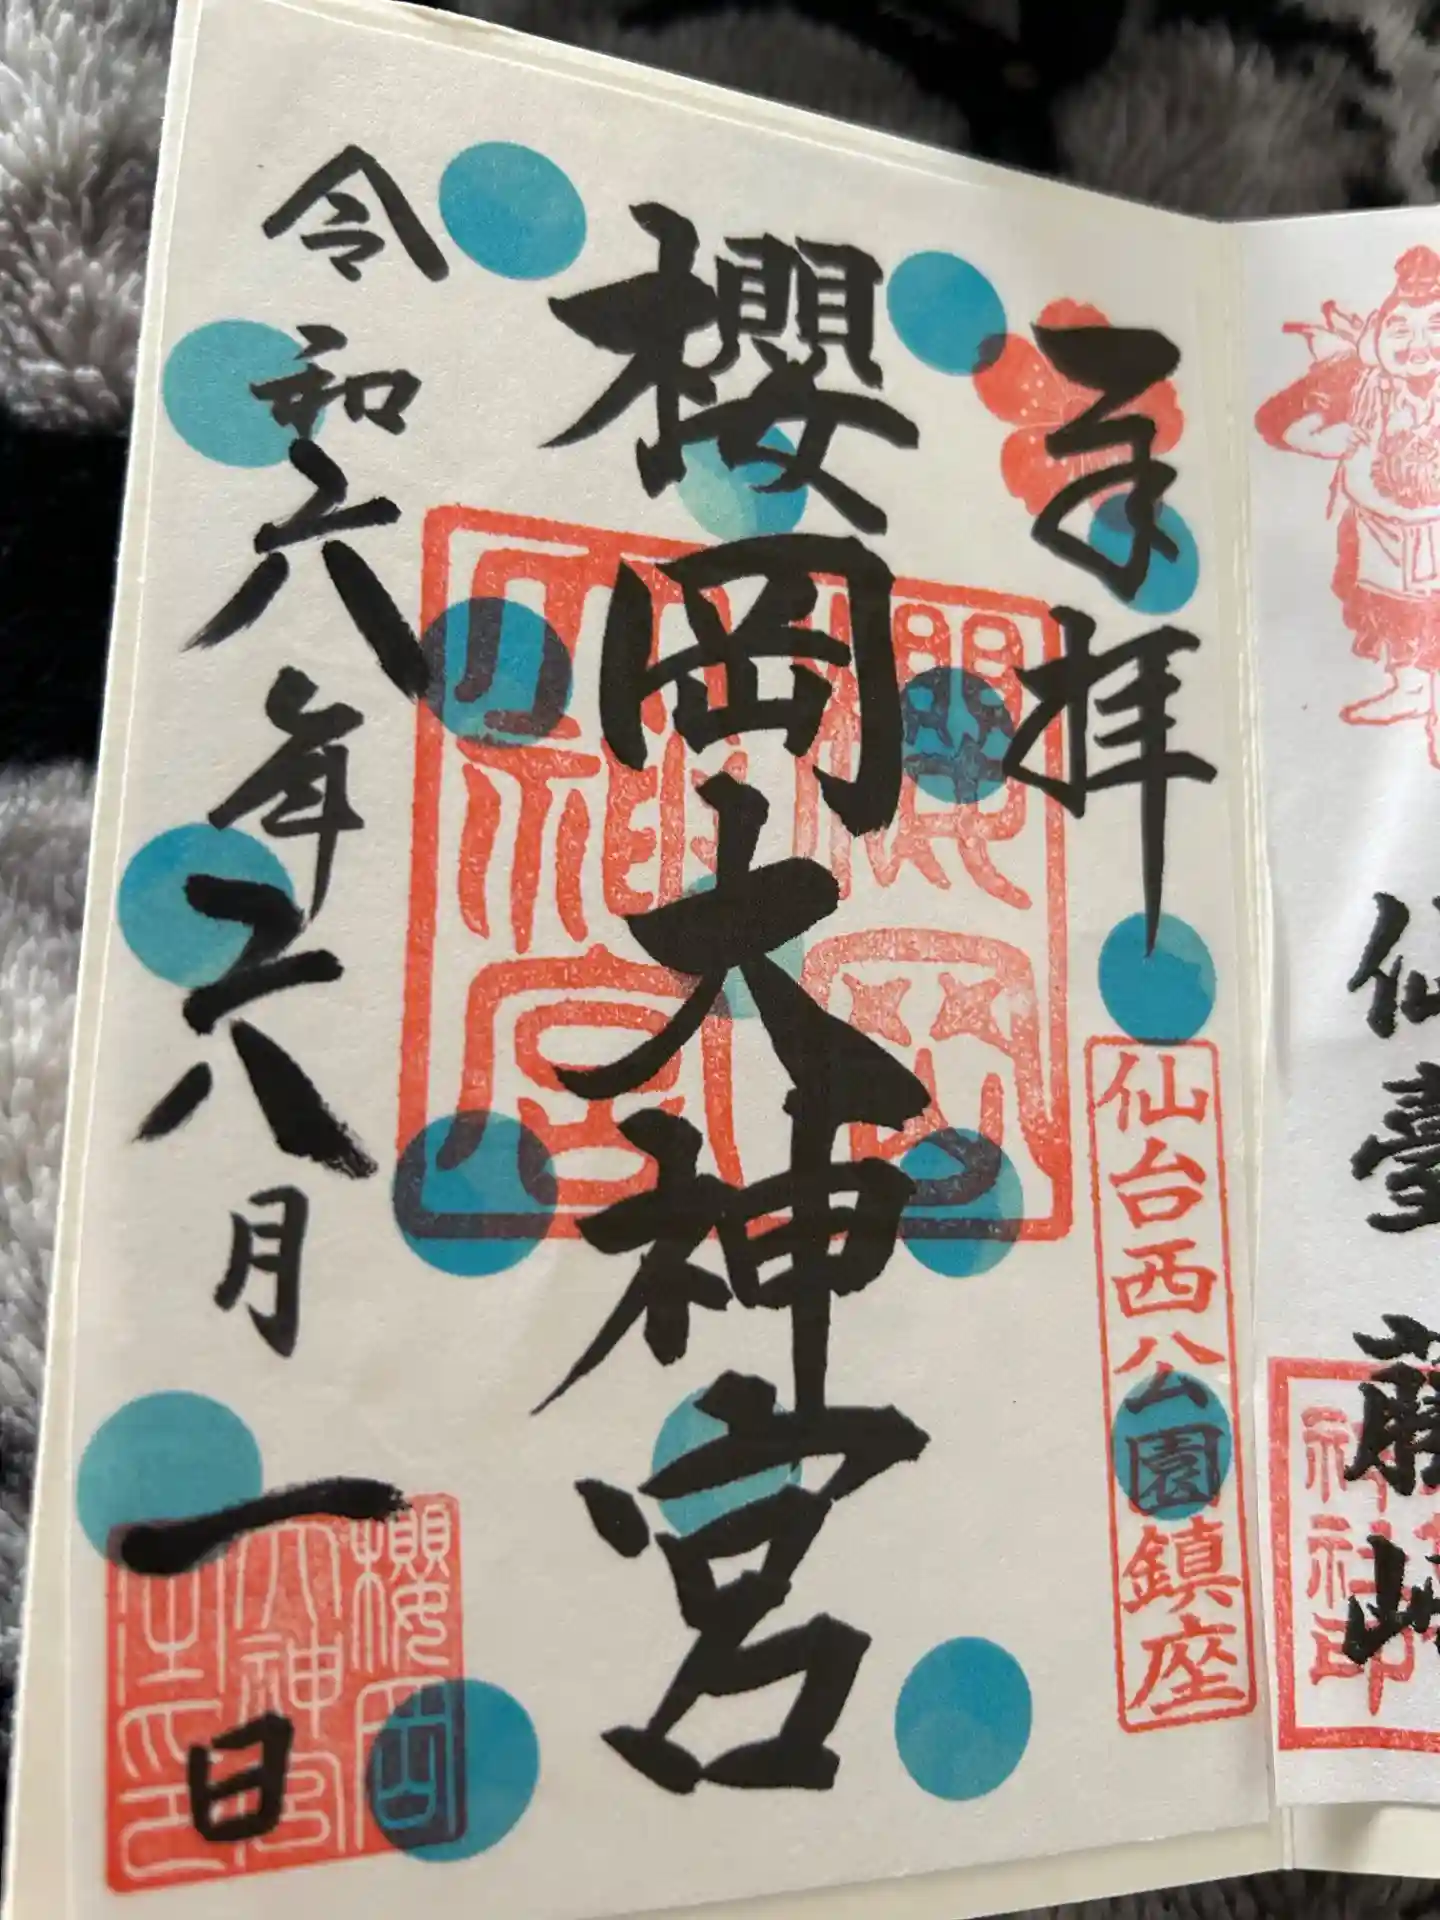 仙臺
奉拝
仙台西公園鎮座
櫻岡大神宮
櫻岡
大神宮
令和六年六月一日
櫻岡
大神宮
之印